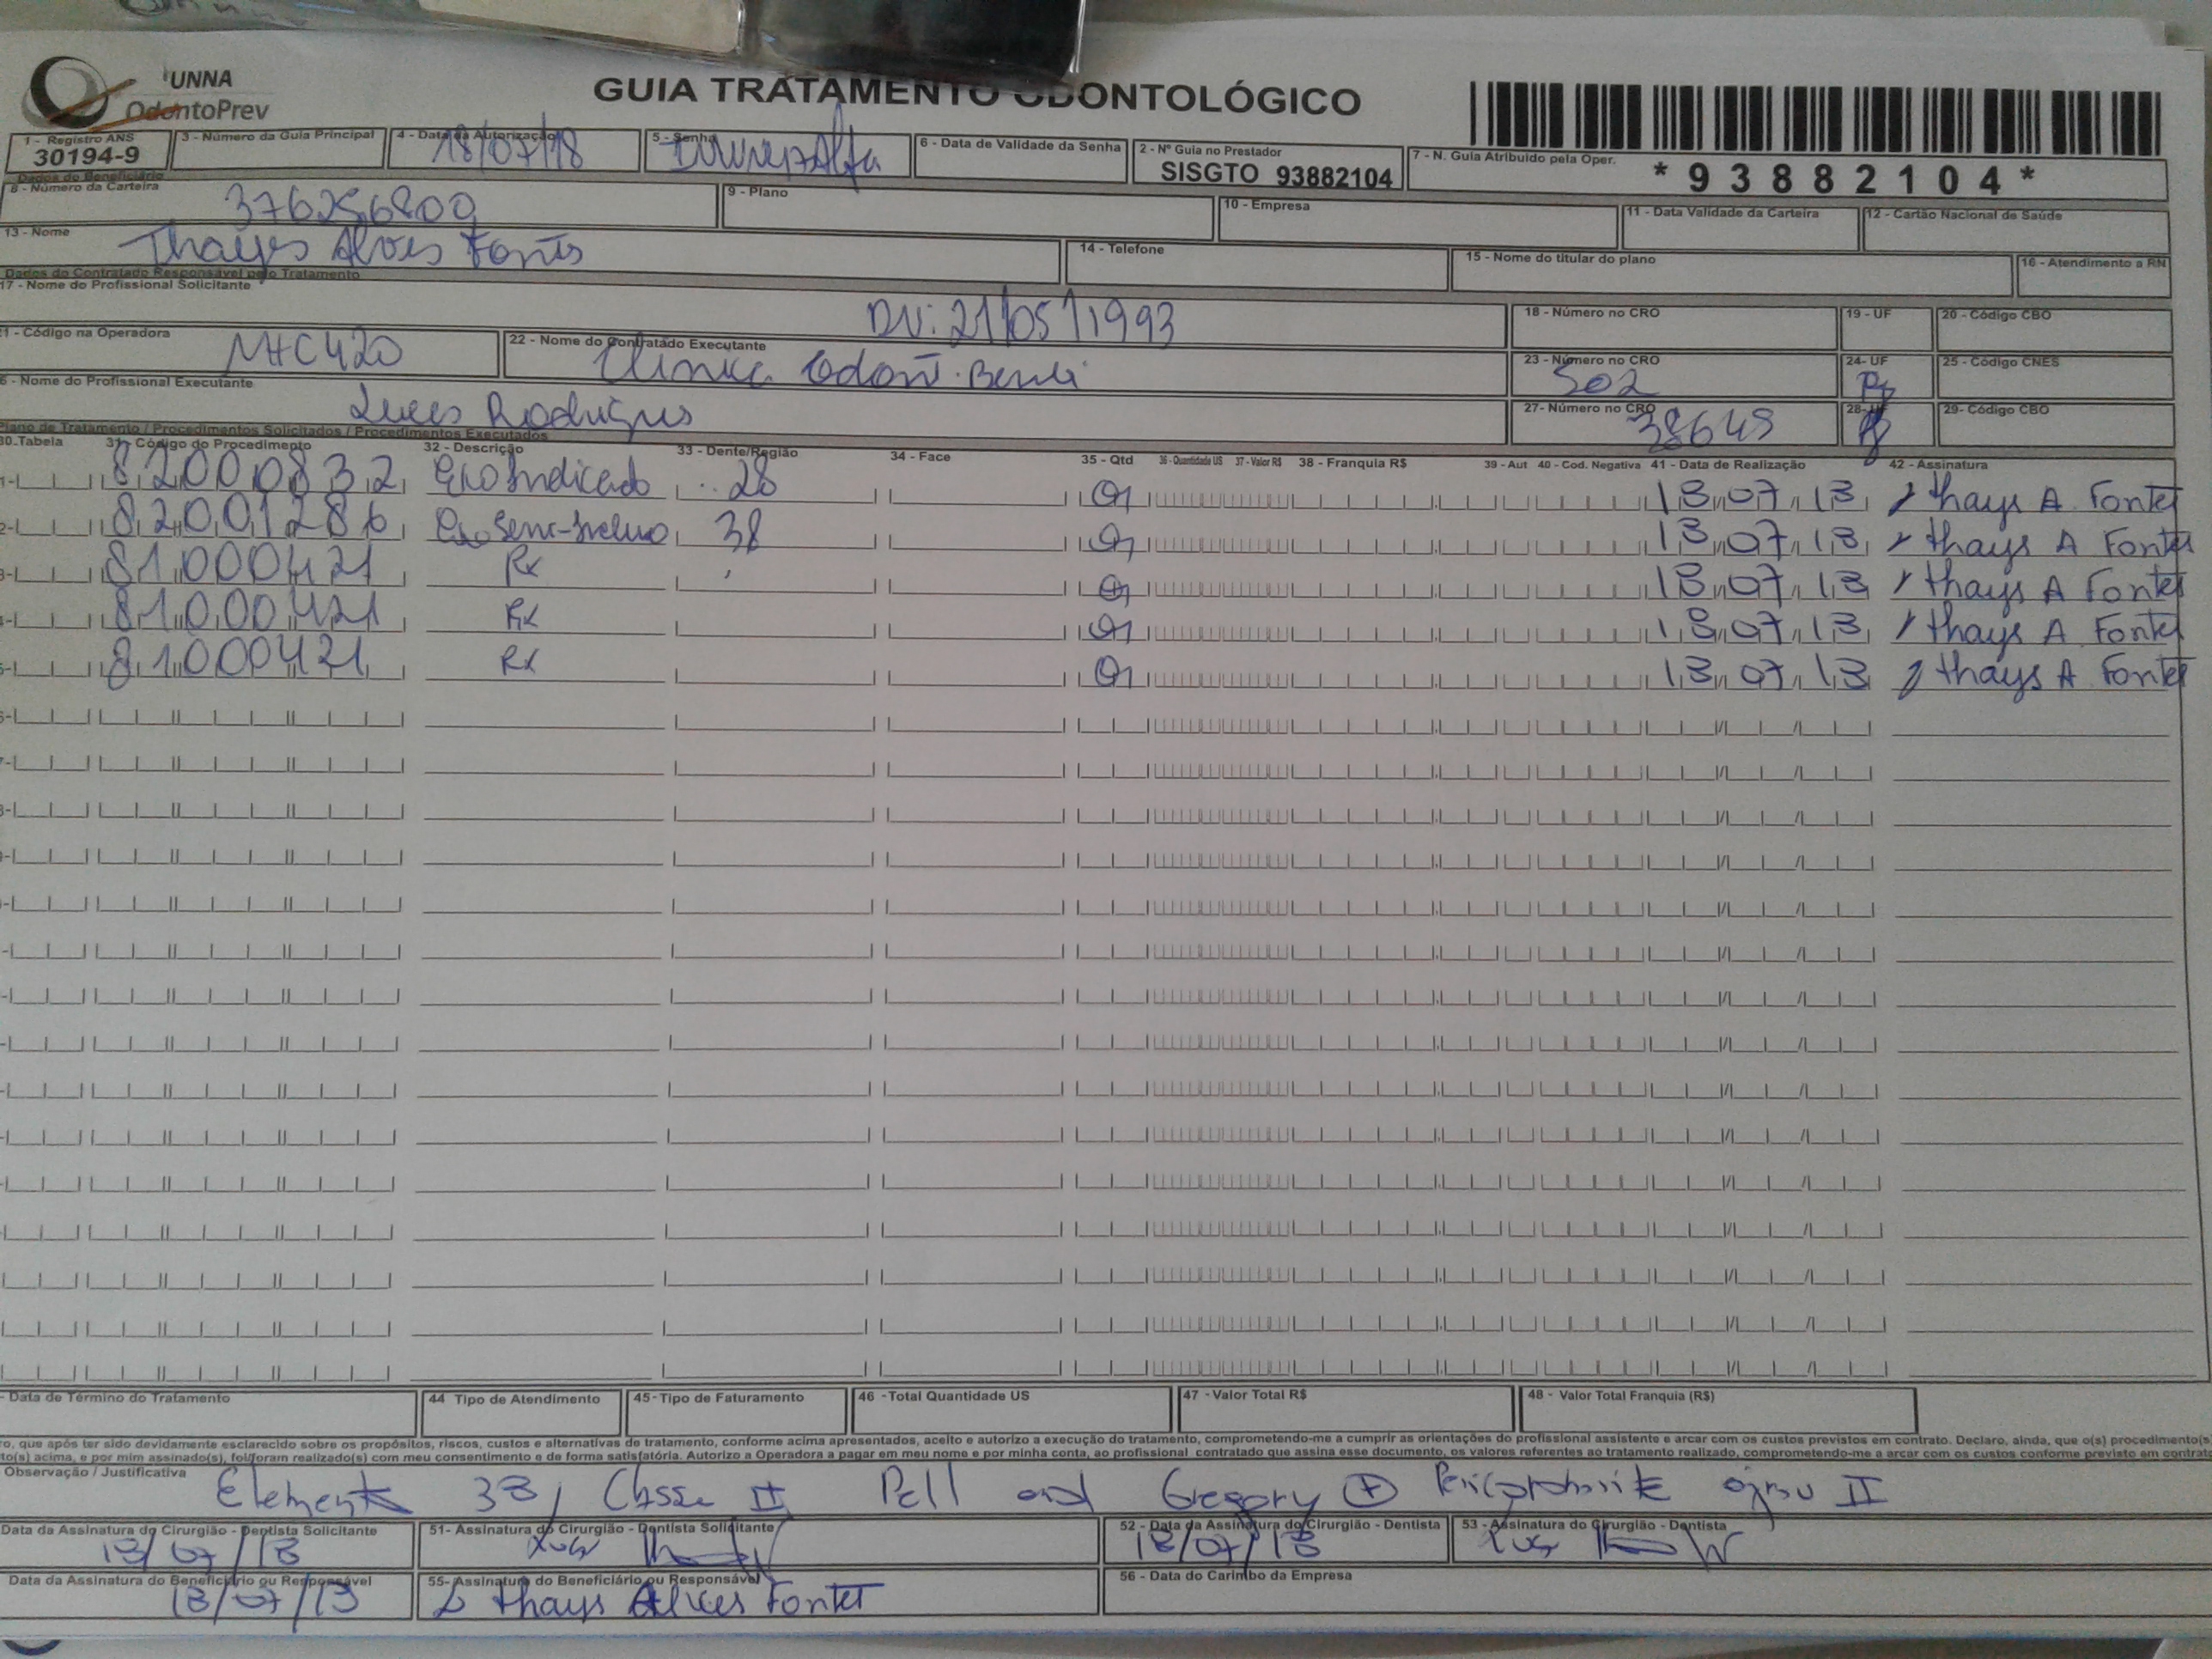 UNNA
OdontoPrev
GUIA TRATAMENTO ODONTOLÓGICO
1 - Registro ANS
30194-9
3 - Número da Guia Principal
4 - Data da Autorização
18/07/18
5 - Senha
6 - Data de Validade da Senha
2 - Nº Guia no Prestador
SISGTO 93882104
7 - N. Guia Atribuido pela Oper.
*93882104*
Dados do Beneficiário
8 - Número da Carteira
376256800
9 - Plano
10 - Empresa
11 - Data Validade da Carteira
12 - Cartão Nacional de Saúde
13 - Nome
Thays Alves Fontes
14 - Telefone
15 - Nome do titular do plano
16 - Atendimento a RN
Dados do Contratado Responsável pelo Tratamento
17 - Nome do Profissional Solicitante
DN: 21/05/1993
18 - Número no CRO
19 - UF
20 - Código CBO
1 - Código na Operadora
22 - Nome do Contratado Executante
Clinica Odont.
23 - Número no CRO
502
24- UF
25 - Código CNES
6 - Nome do Profissional Executante
Lucas Rodrigues
27- Número no CRO
38649
28- UF
29- Código CBO
Plano de Tratamento / Procedimentos Solicitados / Procedimentos Executados
30.Tabela 31- Código do Procedimento 32 - Descrição 33 - Dente/Região 34 - Face 35 - Qtd 36 - Quantidade US 37 - Valor R$ 38 - Franquia R$ 39 - Aut 40 - Cod. Negativa 41 - Data de Realização 42 - Assinatura
82000832 Exo Indicado 28 01 18 07 18 thays A. Fontes
82001286 Exo Semi-Incluso 38 01 18 07 18 thays A Fontes
81000421 Rx 01 18 07 18 thays A Fontes
81000421 Rx 01 18 07 18 thays A Fontes
81000421 Rx 01 18 07 18 thays A Fontes
- Data de Término do Tratamento
44 Tipo de Atendimento
45 - Tipo de Faturamento
46 - Total Quantidade US
47 - Valor Total R$
48 - Valor Total Franquia (R$)
ro, que após ter sido devidamente esclarecido sobre os propósitos, riscos, custos e alternativas de tratamento, conforme acima apresentados, aceito e autorizo a execução do tratamento, comprometendo-me a cumprir as orientações do profissional assistente e arcar com os custos previstos em contrato. Declaro, ainda, que o(s) procedimento(s)
to(s) acima, e por mim assinado(s), foi/foram realizado(s) com meu consentimento e de forma satisfatória. Autorizo a Operadora a pagar em meu nome e por minha conta, ao profissional contratado que assina esse documento, os valores referentes ao tratamento realizado, comprometendo-me a arcar com os custos conforme previsto em contrat
Observação / Justificativa
Elemento 38, Classe II Pell and Gregory + Pericoronarite grau II
Data da Assinatura do Cirurgião - Dentista Solicitante
18/07/18
51- Assinatura do Cirurgião - Dentista Solicitante
52 - Data da Assinatura do Cirurgião - Dentista
18/07/18
53 - Assinatura do Cirurgião - Dentista
Data da Assinatura do Beneficiário ou Responsável
18/07/18
55- Assinatura do Beneficiário ou Responsável
thays Alves Fontes
56 - Data do Carimbo da Empresa